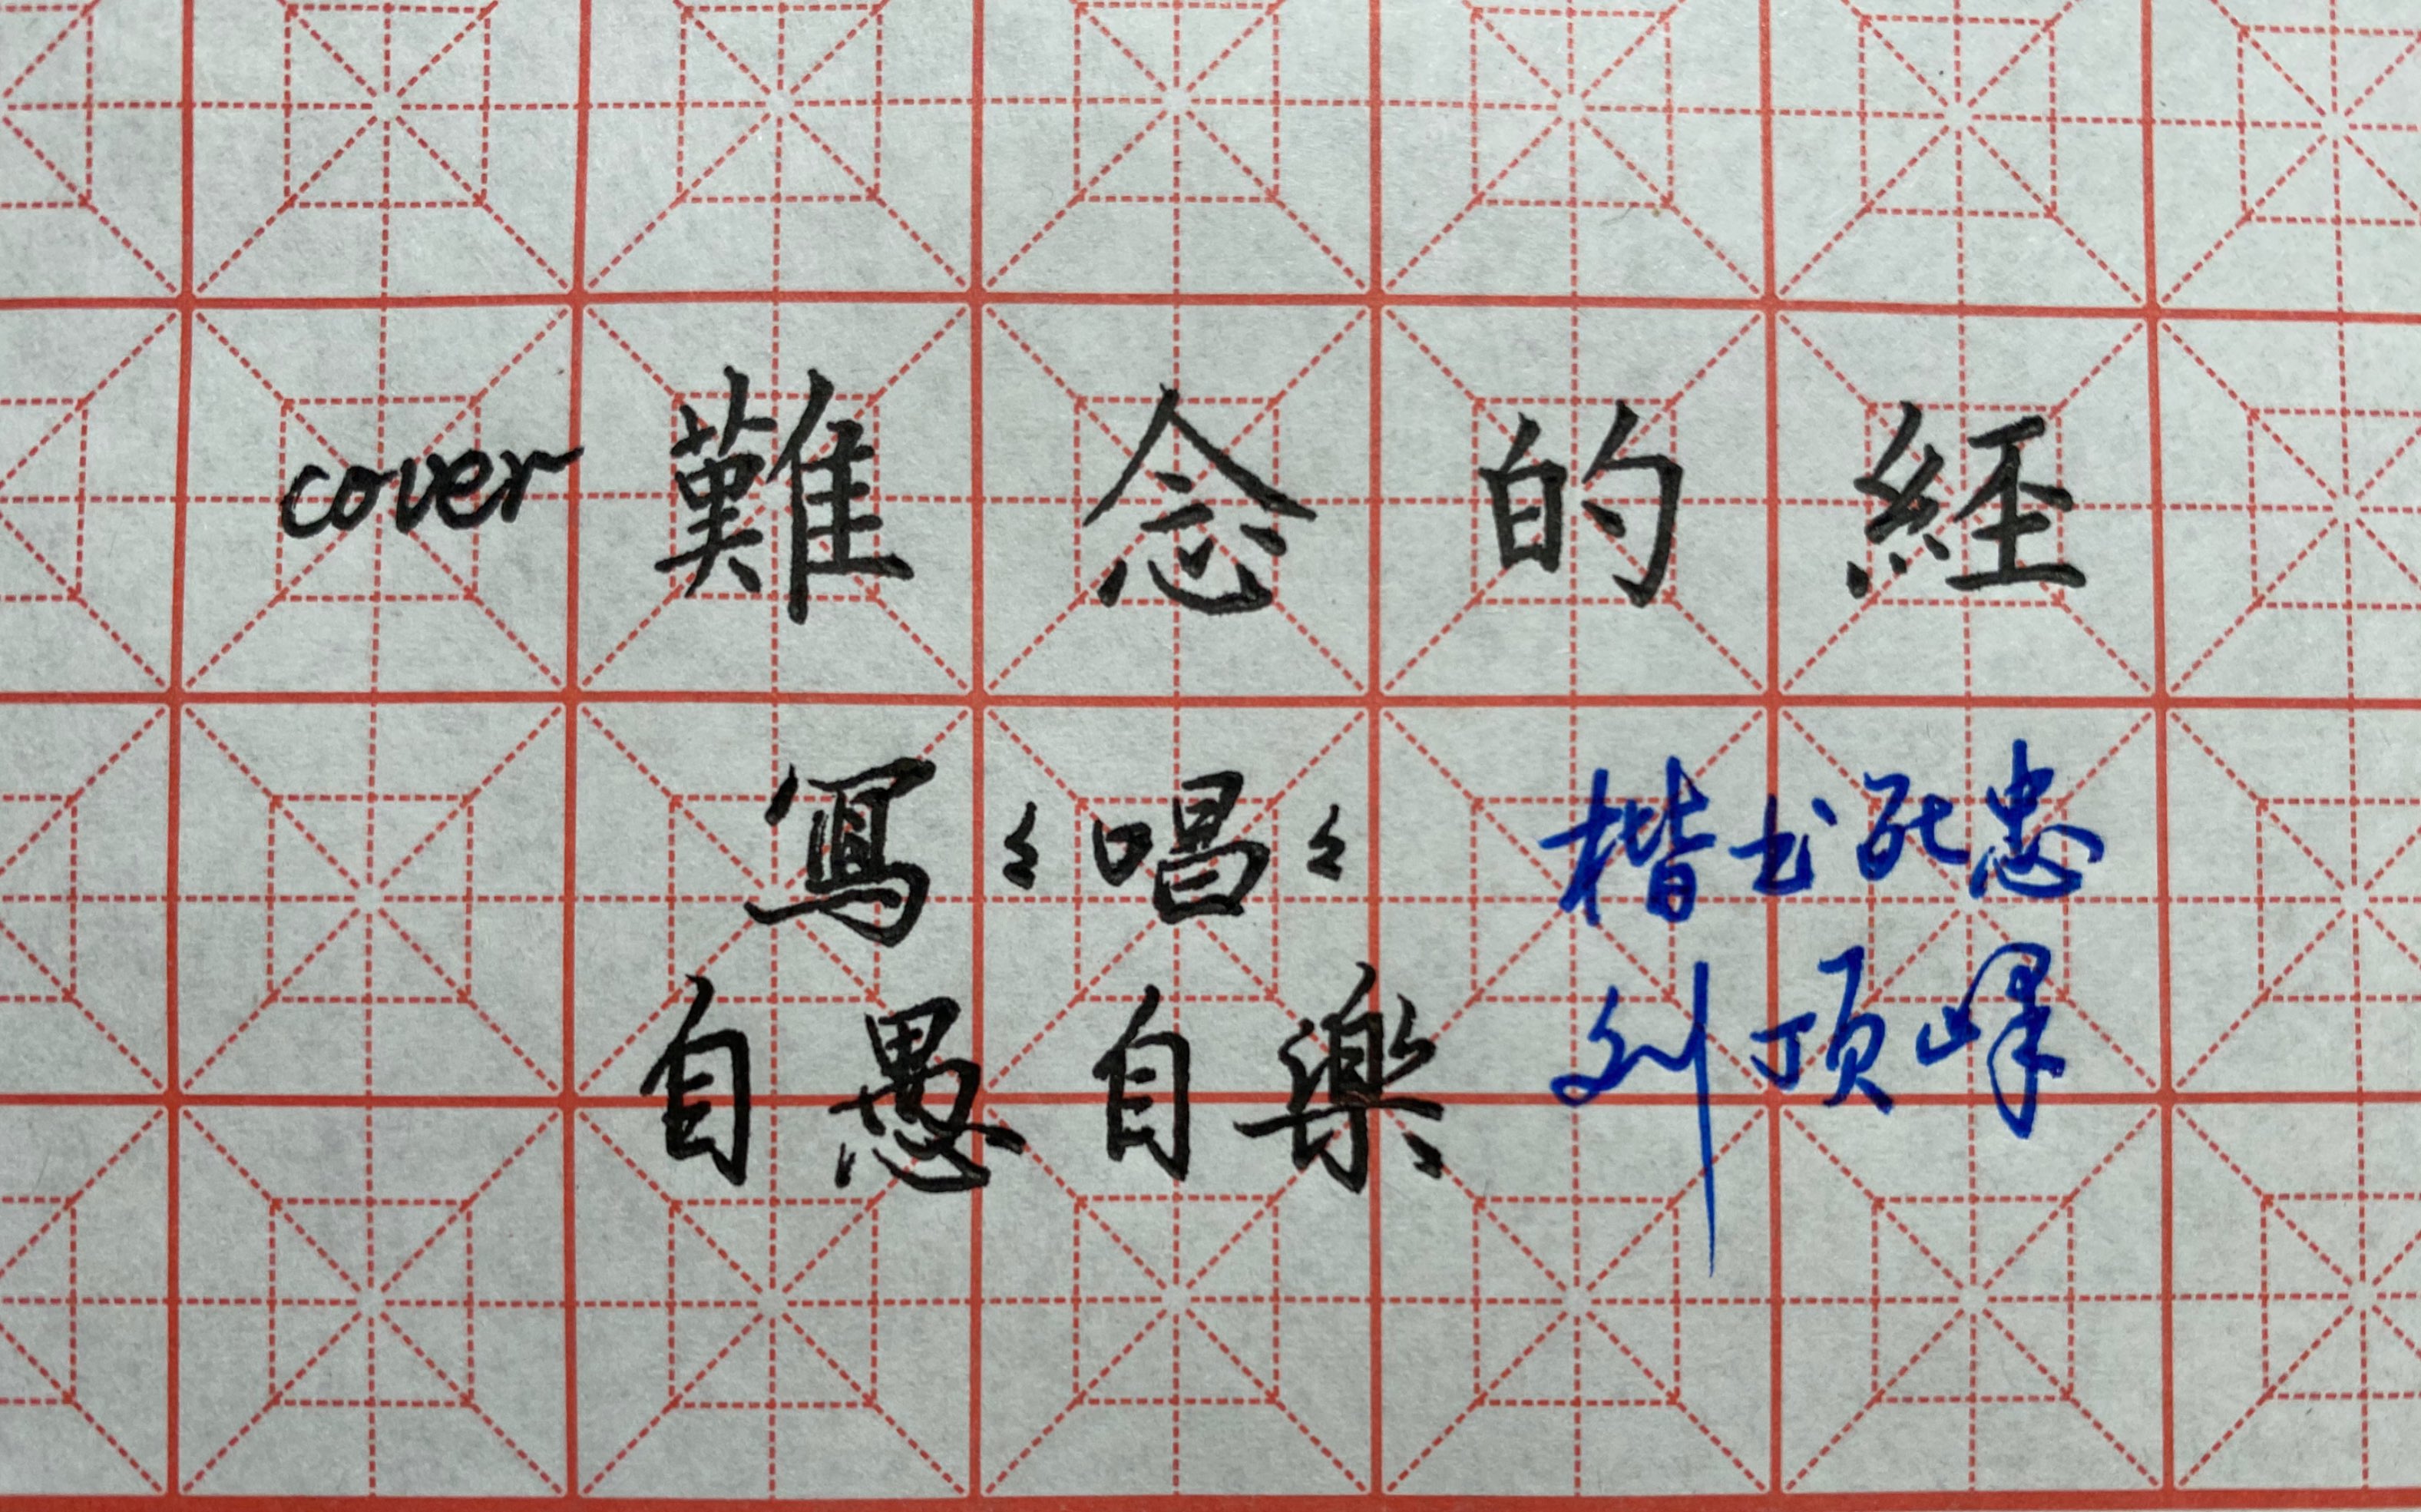 cover 難念的經
寫〻唱〻
自愚自樂
楷书死忠
刘顶峰